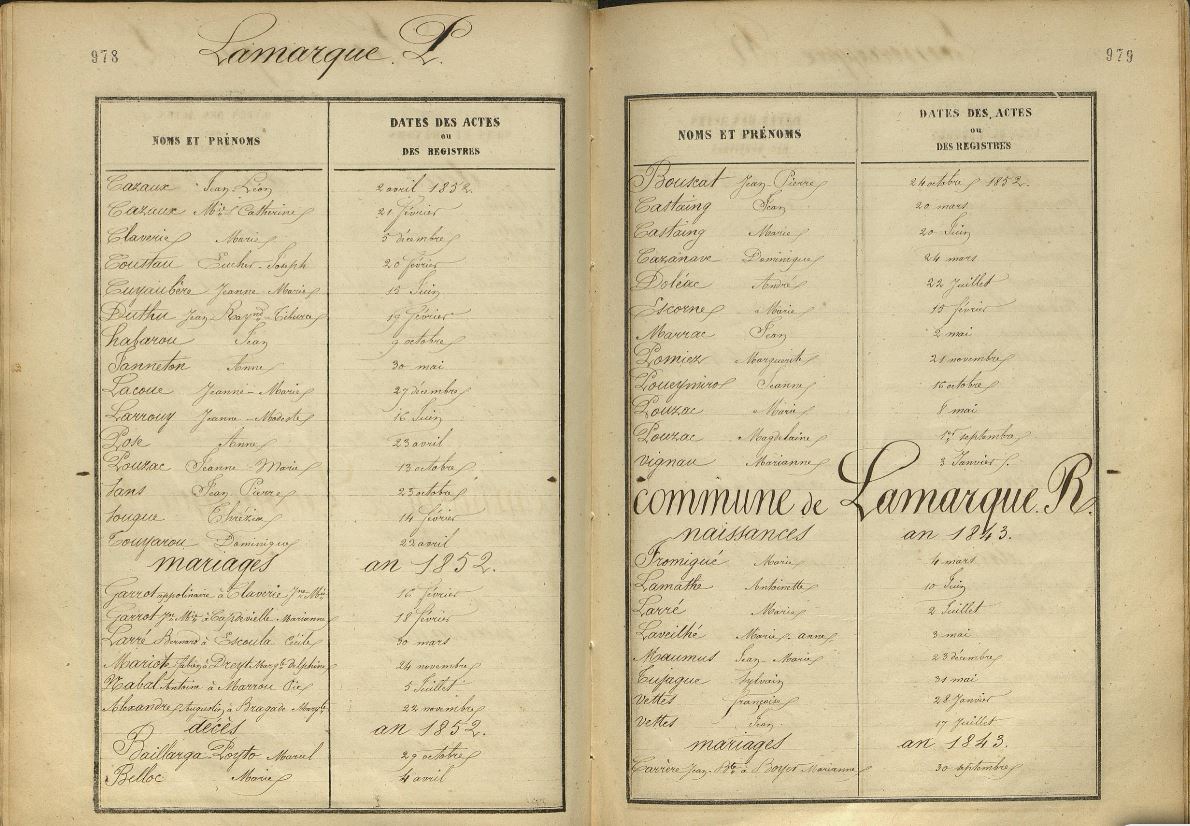 978
Lamarque. P.
NOMS ET PRÉNOMS
DATES DES ACTES
ou
DES REGISTRES
Cazaux Jean Léon 2 avril 1852.
Cazaux Mie Catherine 21 février
Claverie Marie 5 décembre
Coustau Joseph 20 février
Cuyaubère Jeanne Marie 13 Juin
Duthu Jean-Raynd 19 février
habarou Jean 9 octobre
Janneton Anne 30 mai
Lacoue Jeanne-Marie 27 décembre
Larrouy Jeanne-Modeste 16 Juin
Pose Anne 23 avril
Pouzac Jeanne Marie 13 octobre
Sans Jean Pierre 25 octobre
Souque Thrézia 14 février
Touyarou Dominique 22 avril
mariages an 1852.
Garrot appolinaire à Claverie Jne Mie 16 février
Garrot Jn Mie à Capdevielle Marianne 18 février
Larré Bernard à Escoula Cécile 30 mars
Mariote fabien à Dreyt Margte delphine 24 novembre
Nabal Antoine à Marrou 5 Juillet
Alexandre Augustin à Bragade Margte 22 novembre
décès an 1852.
Baillarga Poyto Marcel 29 octobre
Belloc Marie 4 avril
979
NOMS ET PRÉNOMS
DATES DES ACTES
ou
DES REGISTRES
Bouscat Jean Pierre 24 octobre 1852.
Castaing Jean 20 mars
Castaing Marie 20 Juin
Cazanave Dominique 24 mars
Doléac André 22 Juillet
Escorne Marie 15 février
Marrac Jean 2 mai
Pomiez Marguerite 21 novembre
Poueymirol Jeanne 16 octobre
Pouzac Marie 8 mai
Pouzac Magdelaine 1er septembre
vignau Marianne 3 Janvier
commune de Lamarque. R.
naissances an 1843.
Fromigué Marie 4 mars
Lamathe Antoinette 10 Juin
Larré Marie 2 Juillet
Laveilhé Marie-anne 3 mai
Maumus Jean-Marie 23 décembre
Tujague Sylvain 31 mai
vettes françoise 28 Janvier
vettes Jean 17 Juillet
mariages an 1843.
Carrère Jean Bte à Boyer Marianne 30 septembre